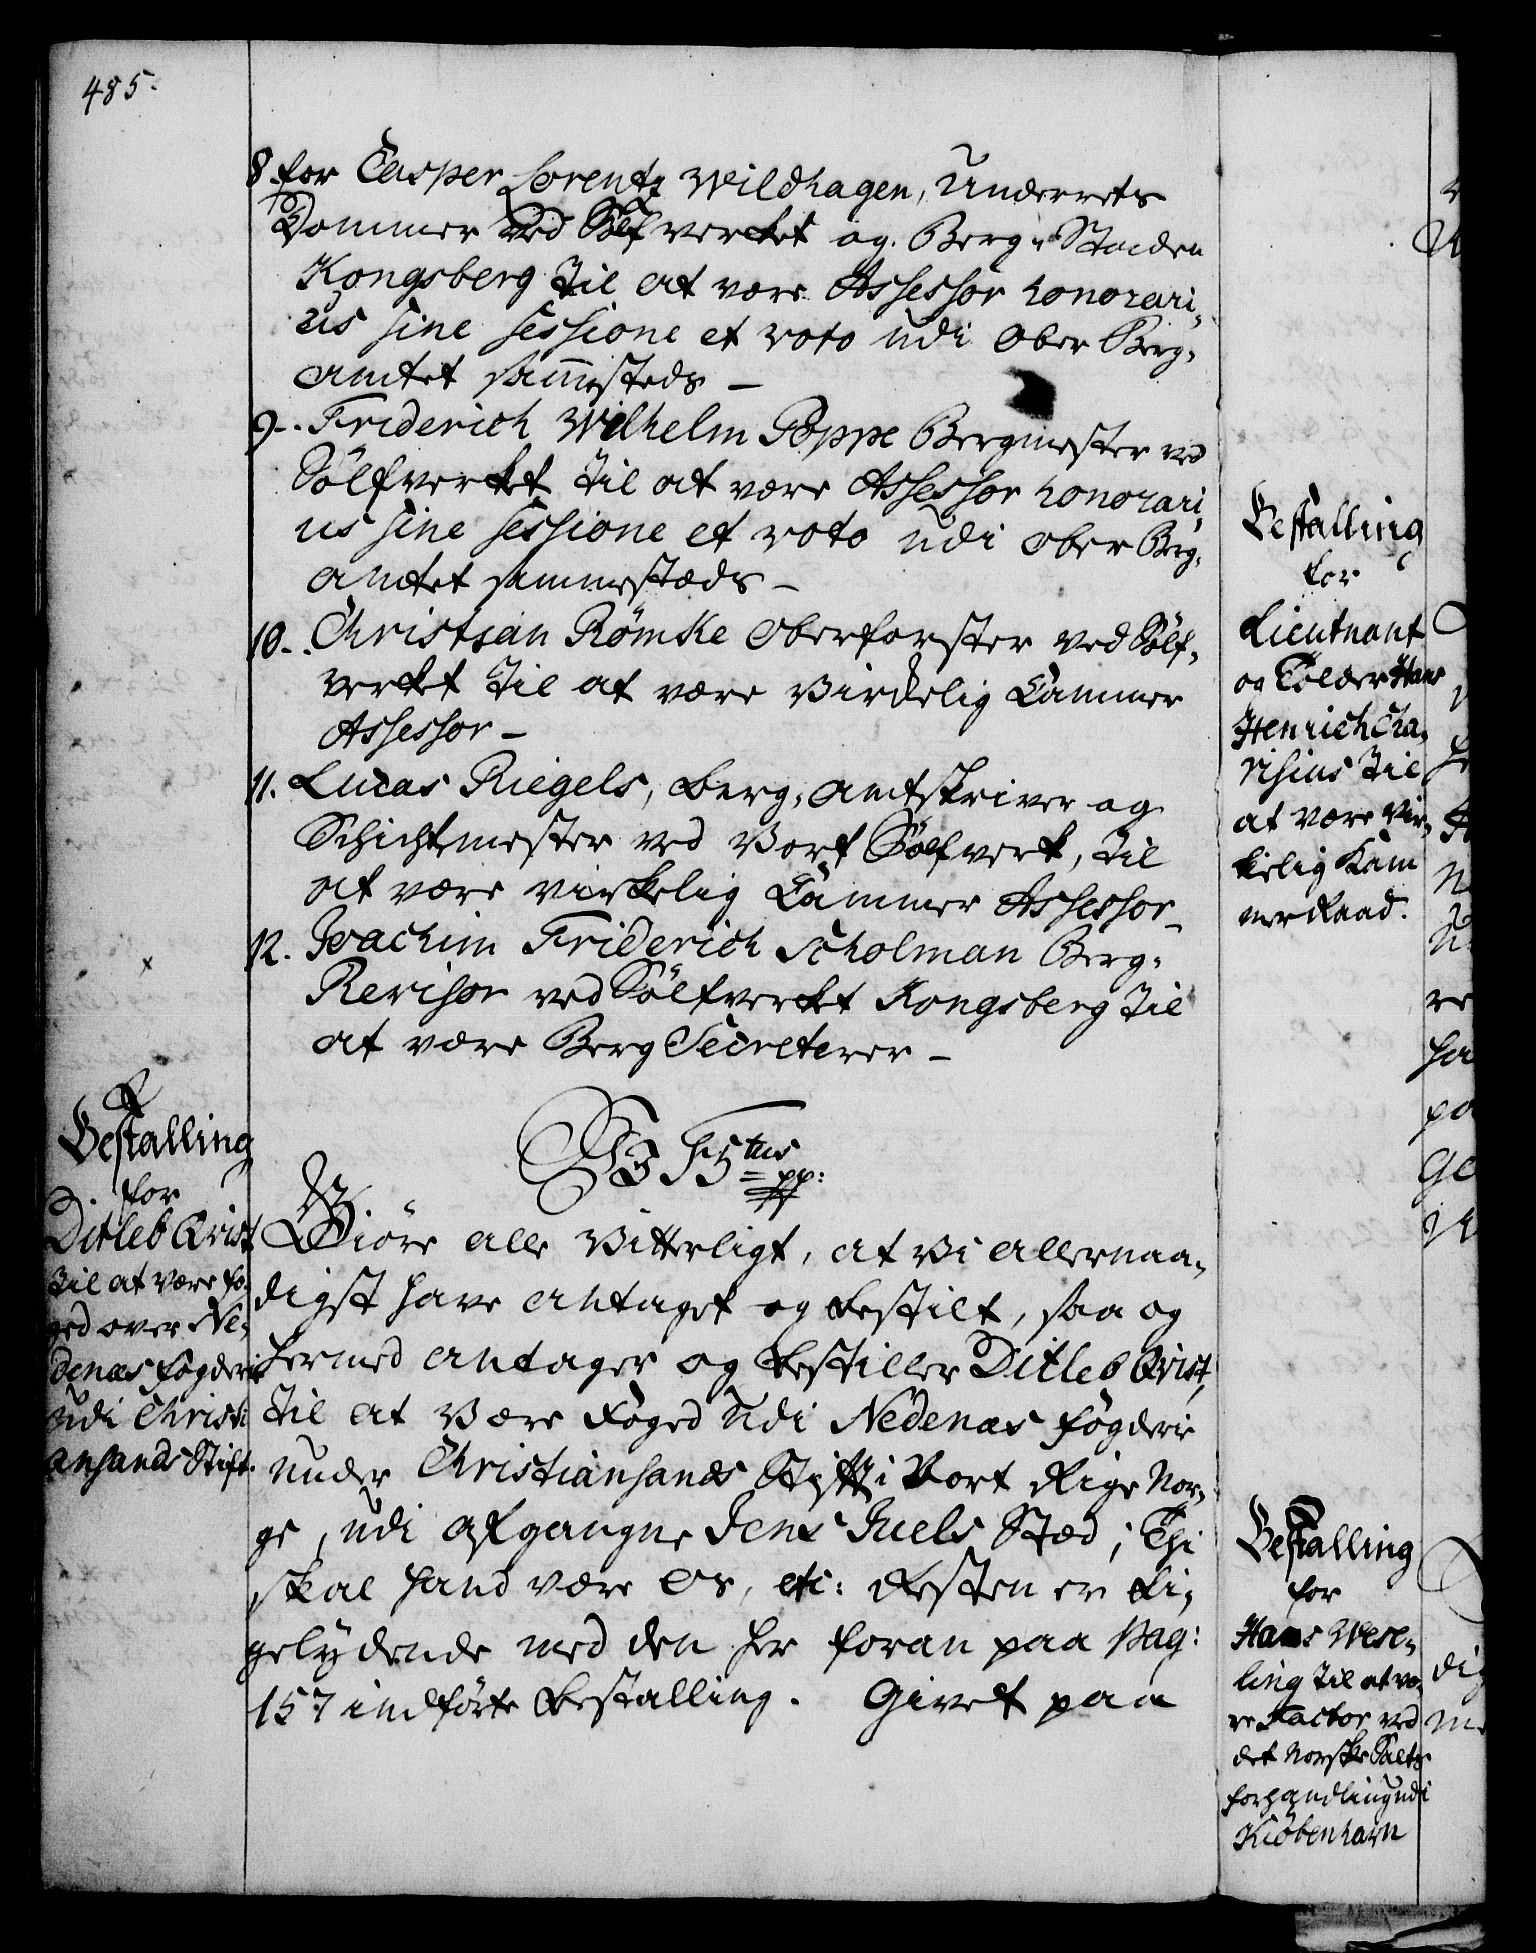 485.
8 for Casper Lorentz Wildhagen, Underrets
Dommer ved Sölfverket og Berg-Staden
Kongsberg til at være Assessor honorari-
us sine sessione et voto udi Ober Berg-
amtet sammesteds –
9. Friderich Wilhelm Poppe Bergmester ved
Sölfverket til at være Assessor honorari-
us sine sessione et voto udi Ober Berg-
amtet sammestæds –
10. Christian Römcke Oberforster ved Sölf-
verket til at være Virkelig Cammer
Assessor –
11. Lucas Riegels, Berg-amtskriver og
Schichtmester ved Vort Sölfverk, til
at være virkelig Cammer Assessor –
12. Joachim Friderich Scholman Berg-
Revisor ved Sölfverket Kongsberg til
at være Berg Secreterer –
Bestalling
for
Ditleb Qvist
til at være fo-
ged over Ne-
denæs fogderie
udi Christi
ansands Stift.
F 5tus pp:
Giöre alle Vitterligt, at Vi allernaa-
digst have antaget og bestilt, saa og
hermed antager og bestiller Ditleb Qvist,
til at Være Foged udi Nedenæs fögderie
under Christiansands Stift i Vort Rige Nor-
ge, udi afgangne Jens Juels Stæd; Thi
skal hand være Os, etc: Resten er li-
gelydende med den her foran paa pag:
157 indförte Bestalling. Givet paa
Bestalling
for
Lieutnant
og Tolder Hans
Henrich Cha-
risius til
at være Vir-
kelig Kam
merRaad.
Bestalling
for
Hans Wese-
ling til at væ-
re Factor ved
det Norske Salts
forhandling udi
Kiöbenhavn